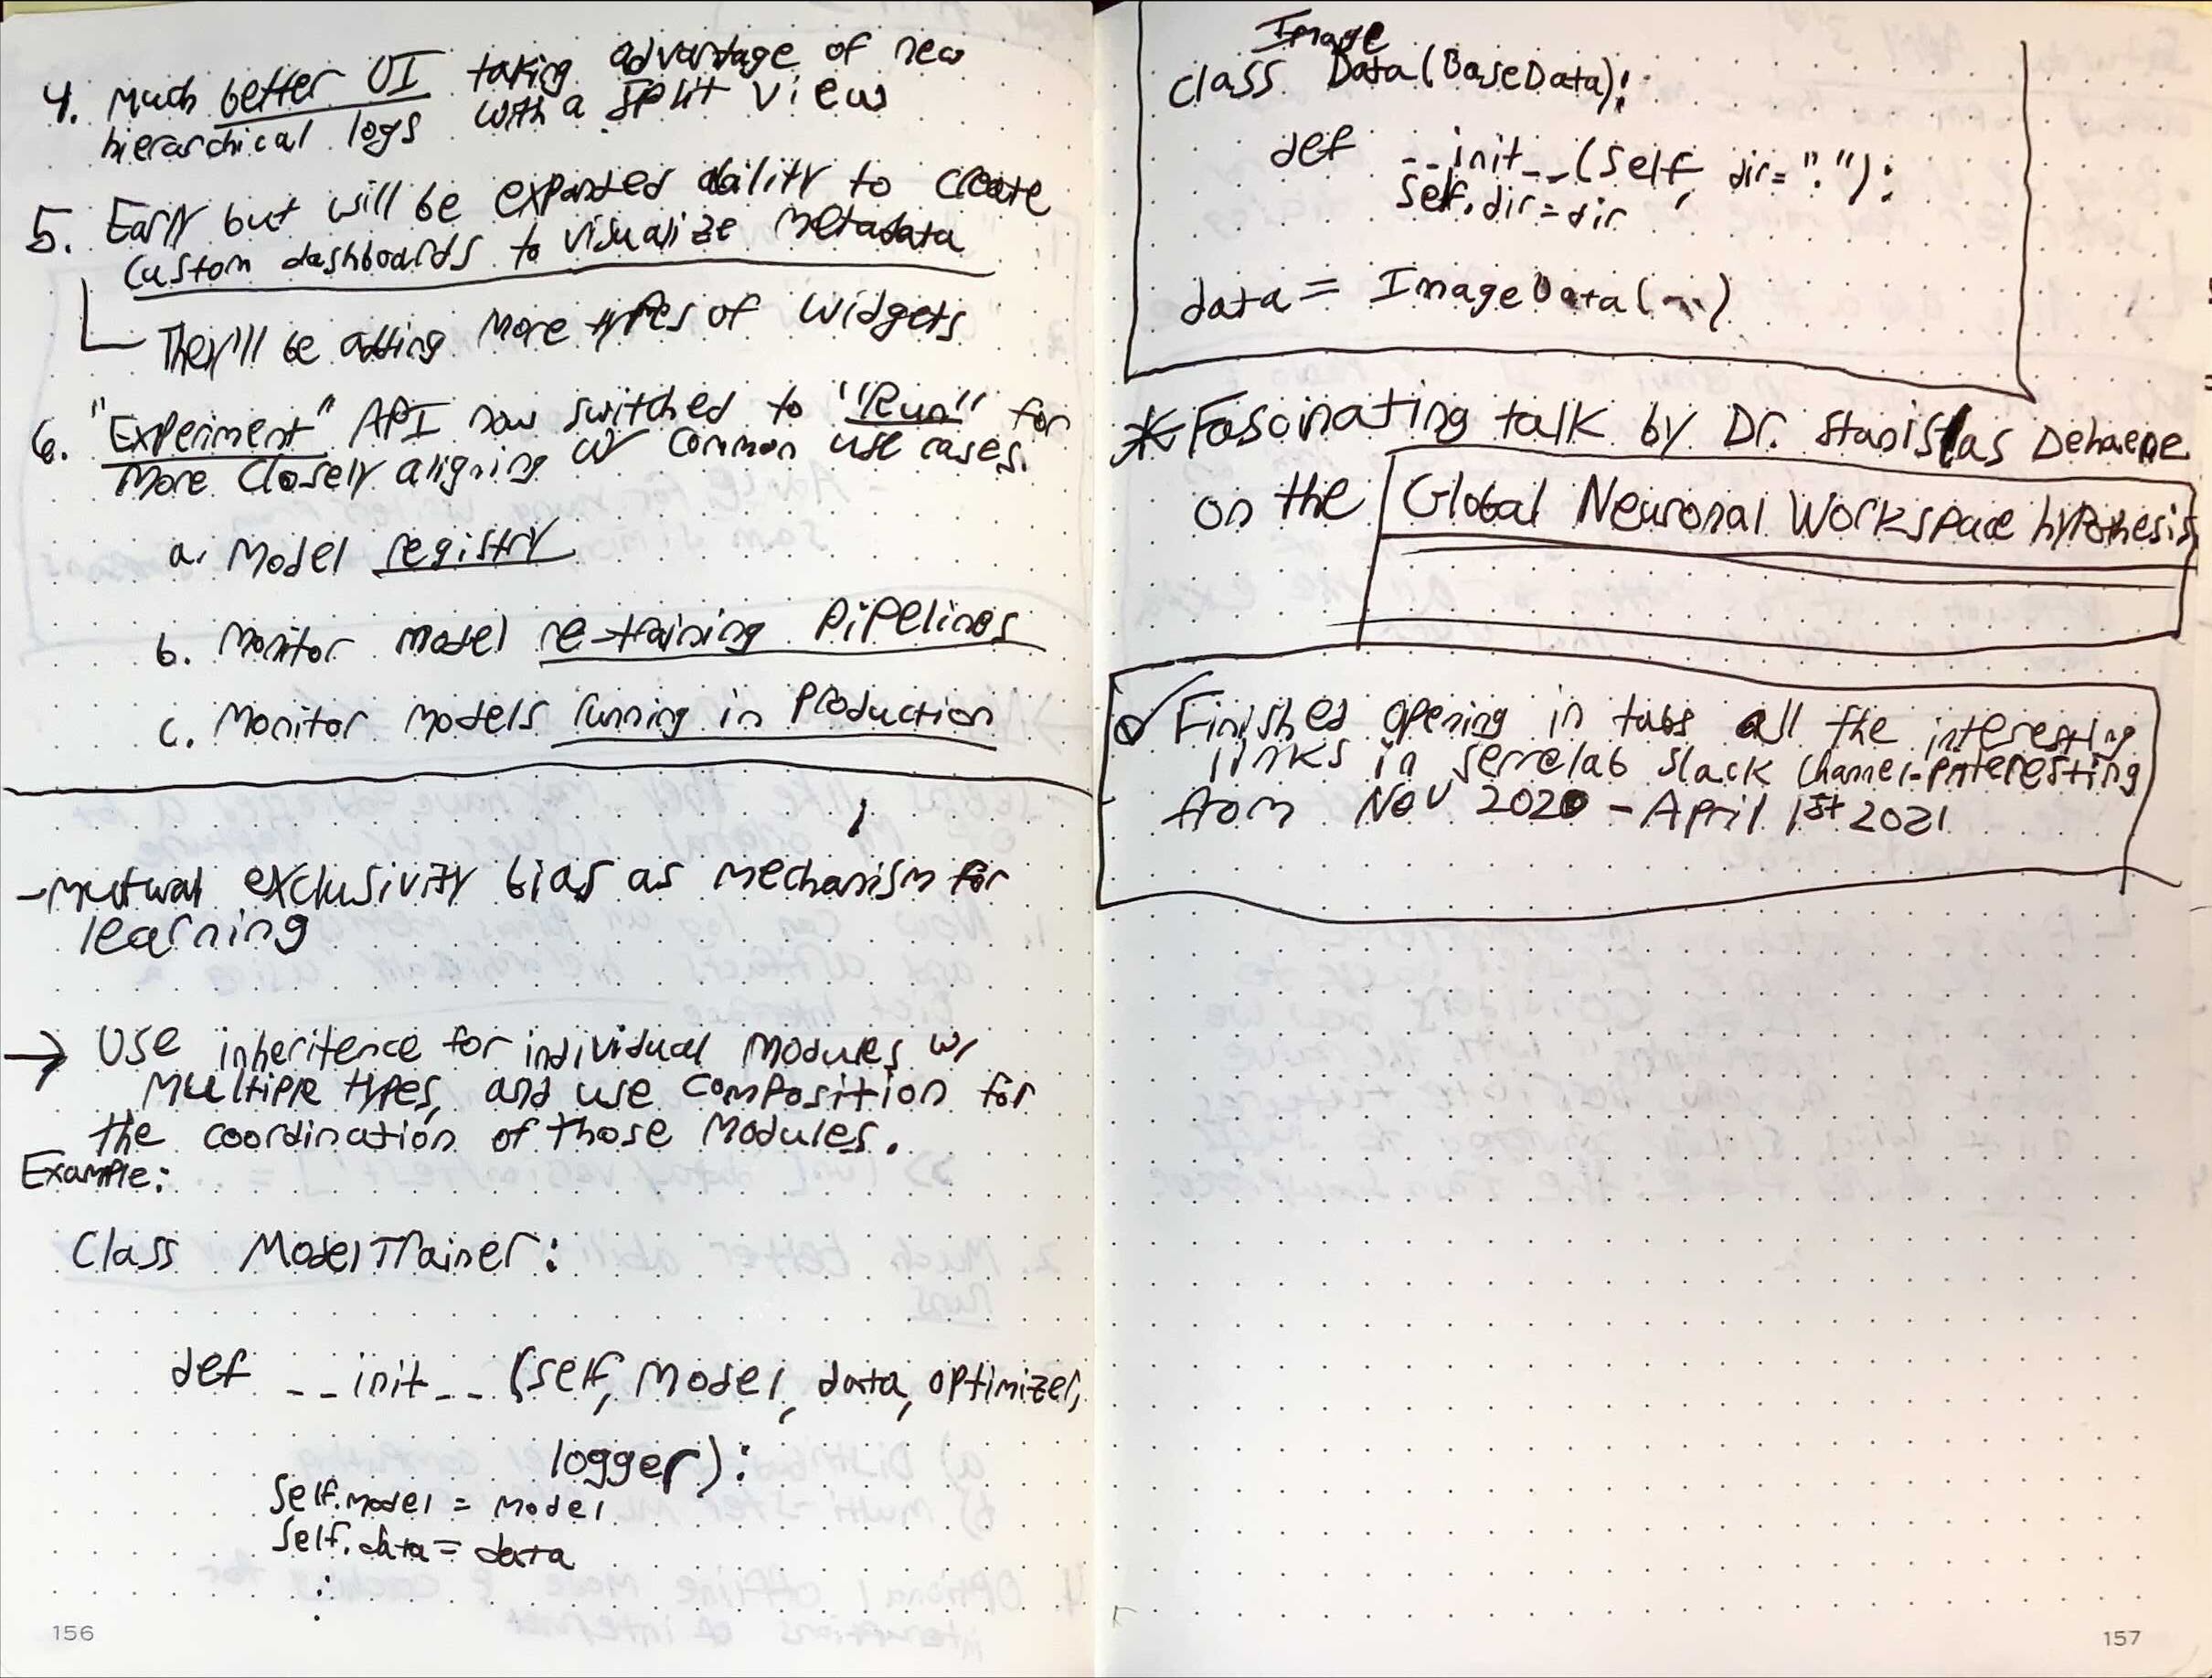 4. Much better UI taking advantage of new
hierarchical logs with a split view
5. Early but will be expanded ability to create
custom dashboards to visualize metadata
They'll be adding more types of widgets
6. "Experiment" API now switched to "Run" for
more closely aligning w/ common use cases.
a. Model registry
b. Monitor model re-training pipelines
c. Monitor models running in production
- mutual exclusivity bias as mechanism for
learning
→ Use inheritence for individual modules w/
multiple types, and use composition for
the coordination of those modules.
Example:
Class ModelTrainer:
def __init__(self, model, data, optimizer,
logger):
self.model = model
self.data = data
⋮
156
Image
class Data(BaseData):
def __init__(self, dir="."):
self.dir = dir
data = ImageData(...)
* Fascinating talk by Dr. Stanislas Dehaene
on the Global Neuronal Workspace hypothesis
Finished opening in tabs all the interesting
links in serrelab slack channel-interesting
from Nov 2020 - April 1st 2021
157